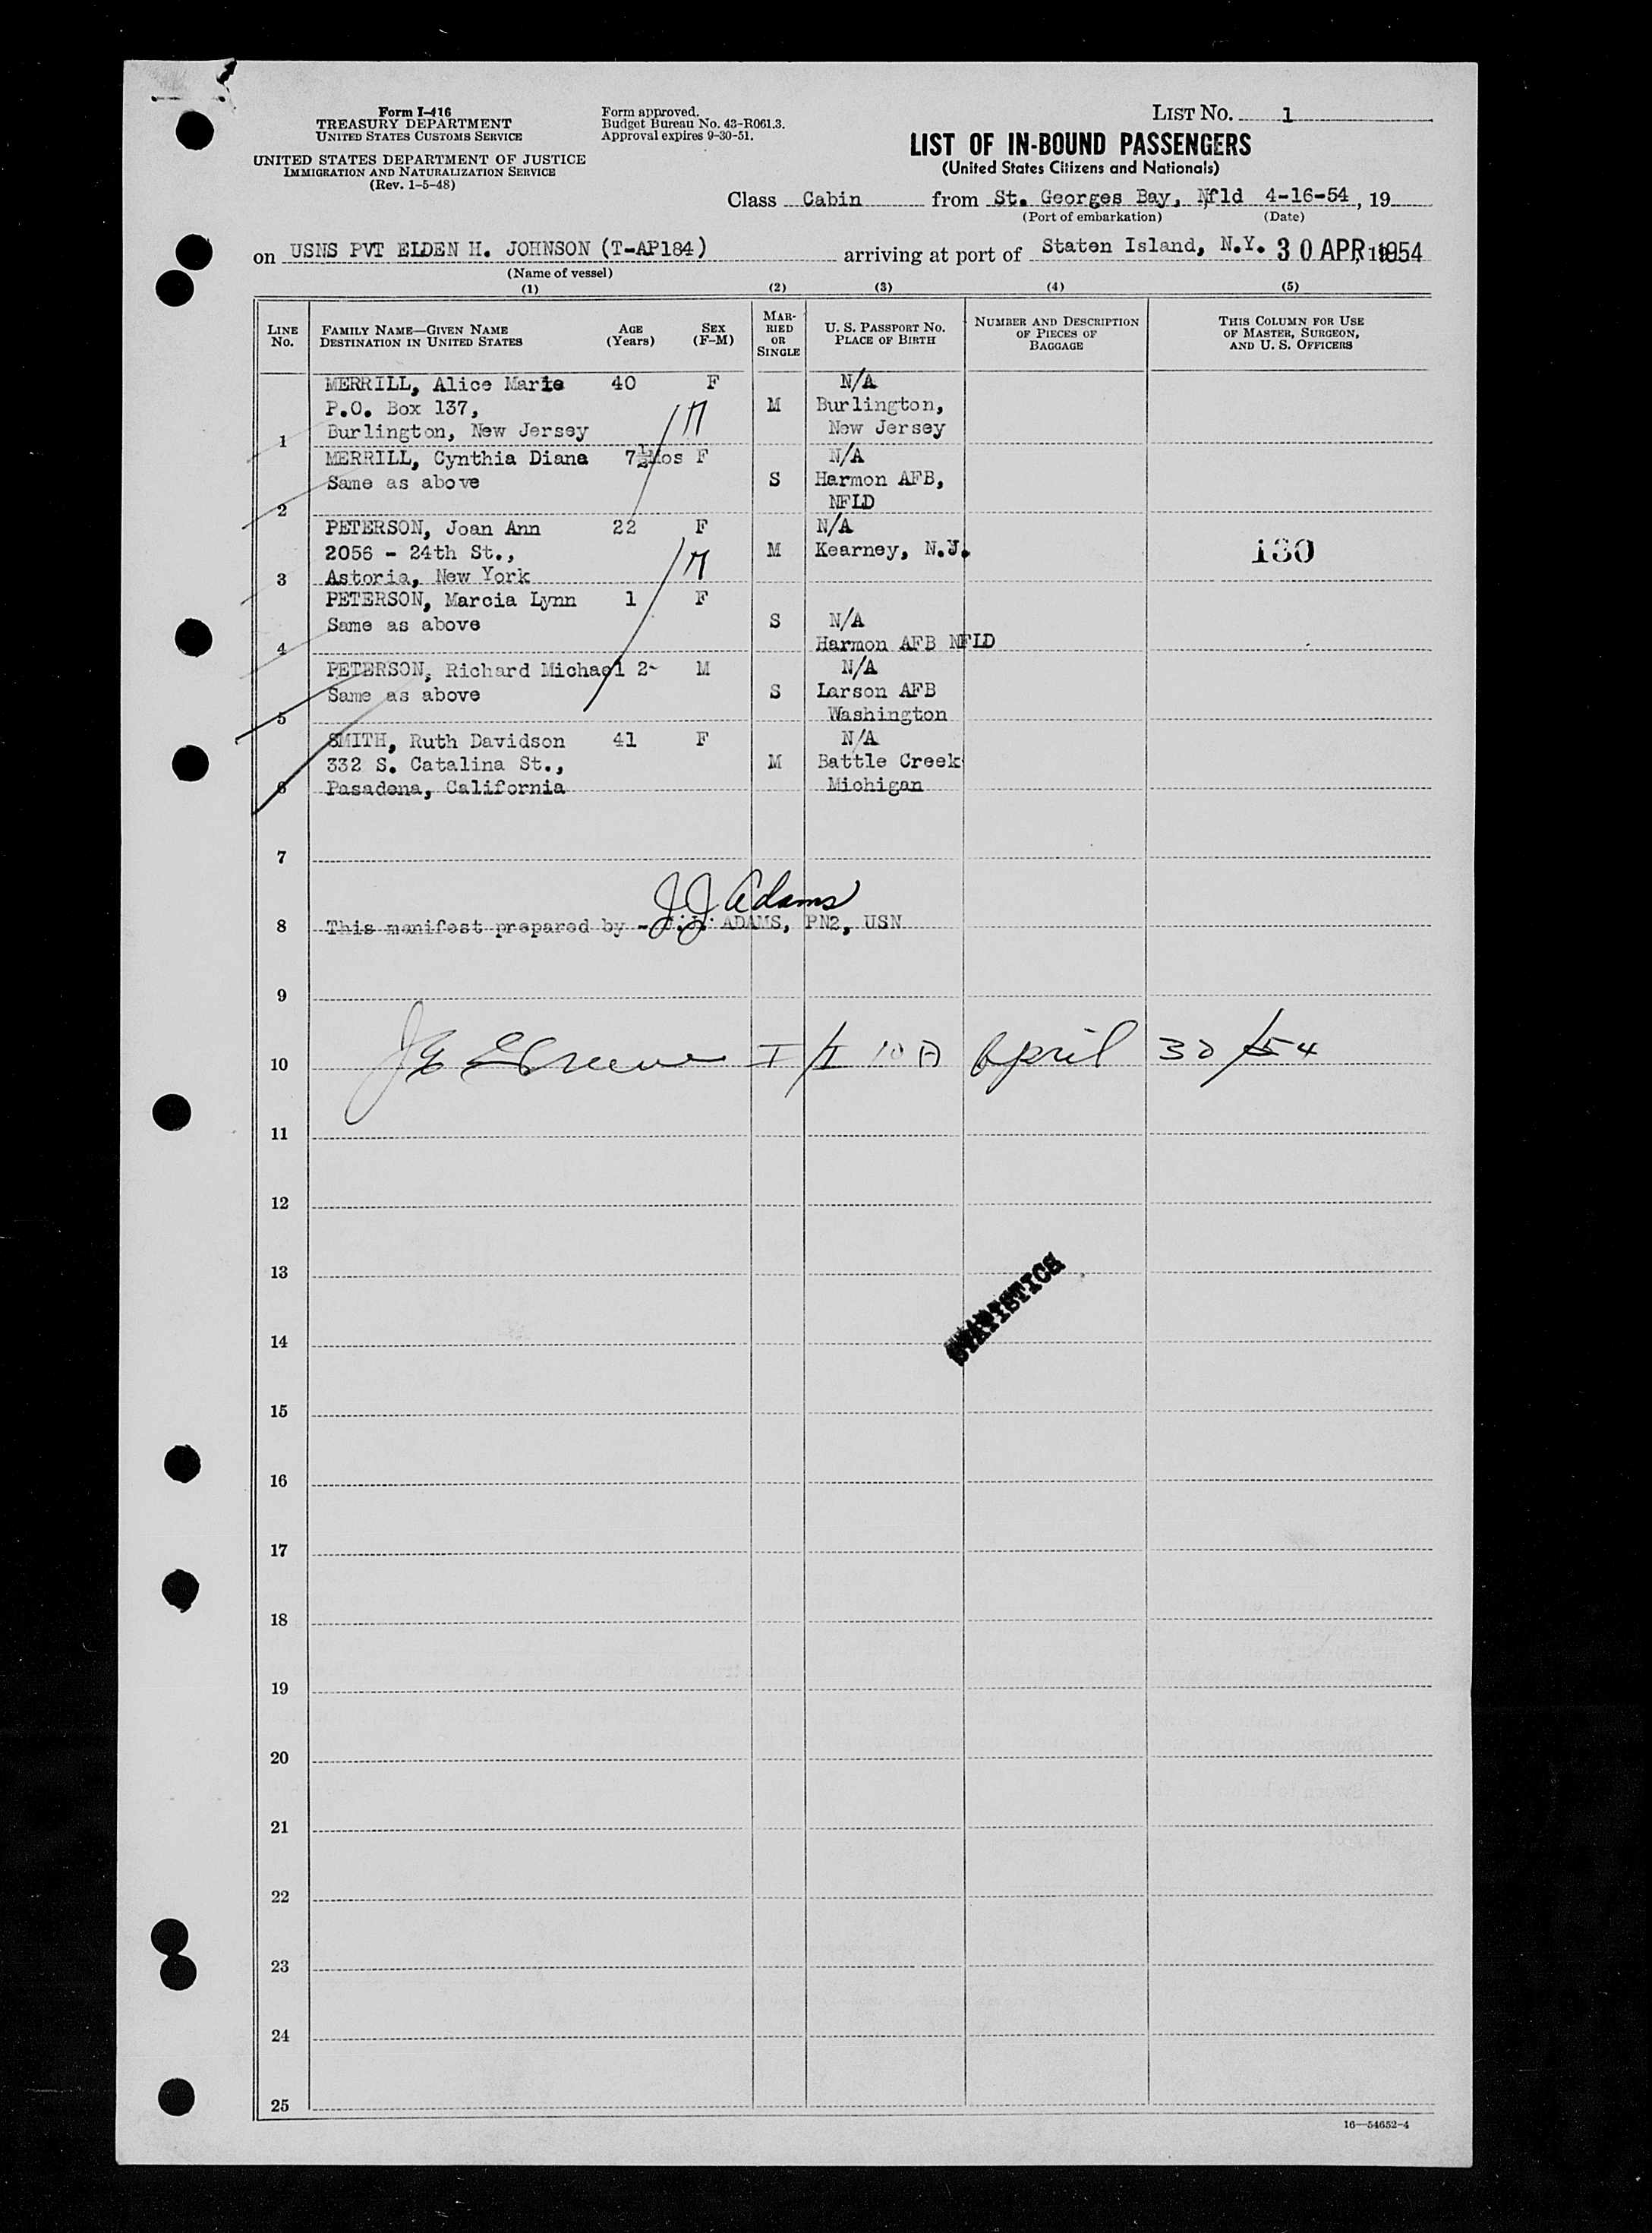 Form I-416
TREASURY DEPARTMENT
UNITED STATES CUSTOMS SERVICE
UNITED STATES DEPARTMENT OF JUSTICE
IMMIGRATION AND NATURALIZATION SERVICE
(Rev. 1-5-48)
Form approved.
Budget Bureau No. 43-R061.3.
Approval expires 9-30-51.
LIST NO. 1
LIST OF IN-BOUND PASSENGERS
(United States Citizens and Nationals)
Class Cabin from St. Georges Bay, Nfld 4-16-54, 19
(Port of embarkation) (Date)
on USNS PVT ELDEN H. JOHNSON (T-AP184) arriving at port of Staten Island, N.Y. 30 APR 1954
(Name of vessel)
(1) (2) (3) (4) (5)
LINE NO. FAMILY NAME—GIVEN NAME DESTINATION IN UNITED STATES AGE (Years) SEX (F-M) MARRIED OR SINGLE U. S. PASSPORT NO. PLACE OF BIRTH NUMBER AND DESCRIPTION OF PIECES OF BAGGAGE THIS COLUMN FOR USE OF MASTER, SURGEON, AND U. S. OFFICERS
MERRILL, Alice Marie 40 F N/A
P.O. Box 137, M Burlington,
1 Burlington, New Jersey New Jersey
MERRILL, Cynthia Diana 7½Mos F N/A
Same as above S Harmon AFB,
2 NFLD
PETERSON, Joan Ann 22 F N/A
2056 - 24th St., M Kearney, N.J. 130
3 Astoria, New York
PETERSON, Marcia Lynn 1 F
Same as above S N/A
4 Harmon AFB NFLD
PETERSON, Richard Michael 2 M N/A
Same as above S Larson AFB
5 Washington
SMITH, Ruth Davidson 41 F N/A
332 S. Catalina St., M Battle Creek
6 Pasadena, California Michigan
7
J J Adams
8 This manifest prepared by - J.J. ADAMS, PN2, USN
9
10 April 30/54
11
12
13
STATISTICS
14
15
16
17
18
19
20
21
22
23
24
25
16—54652-4